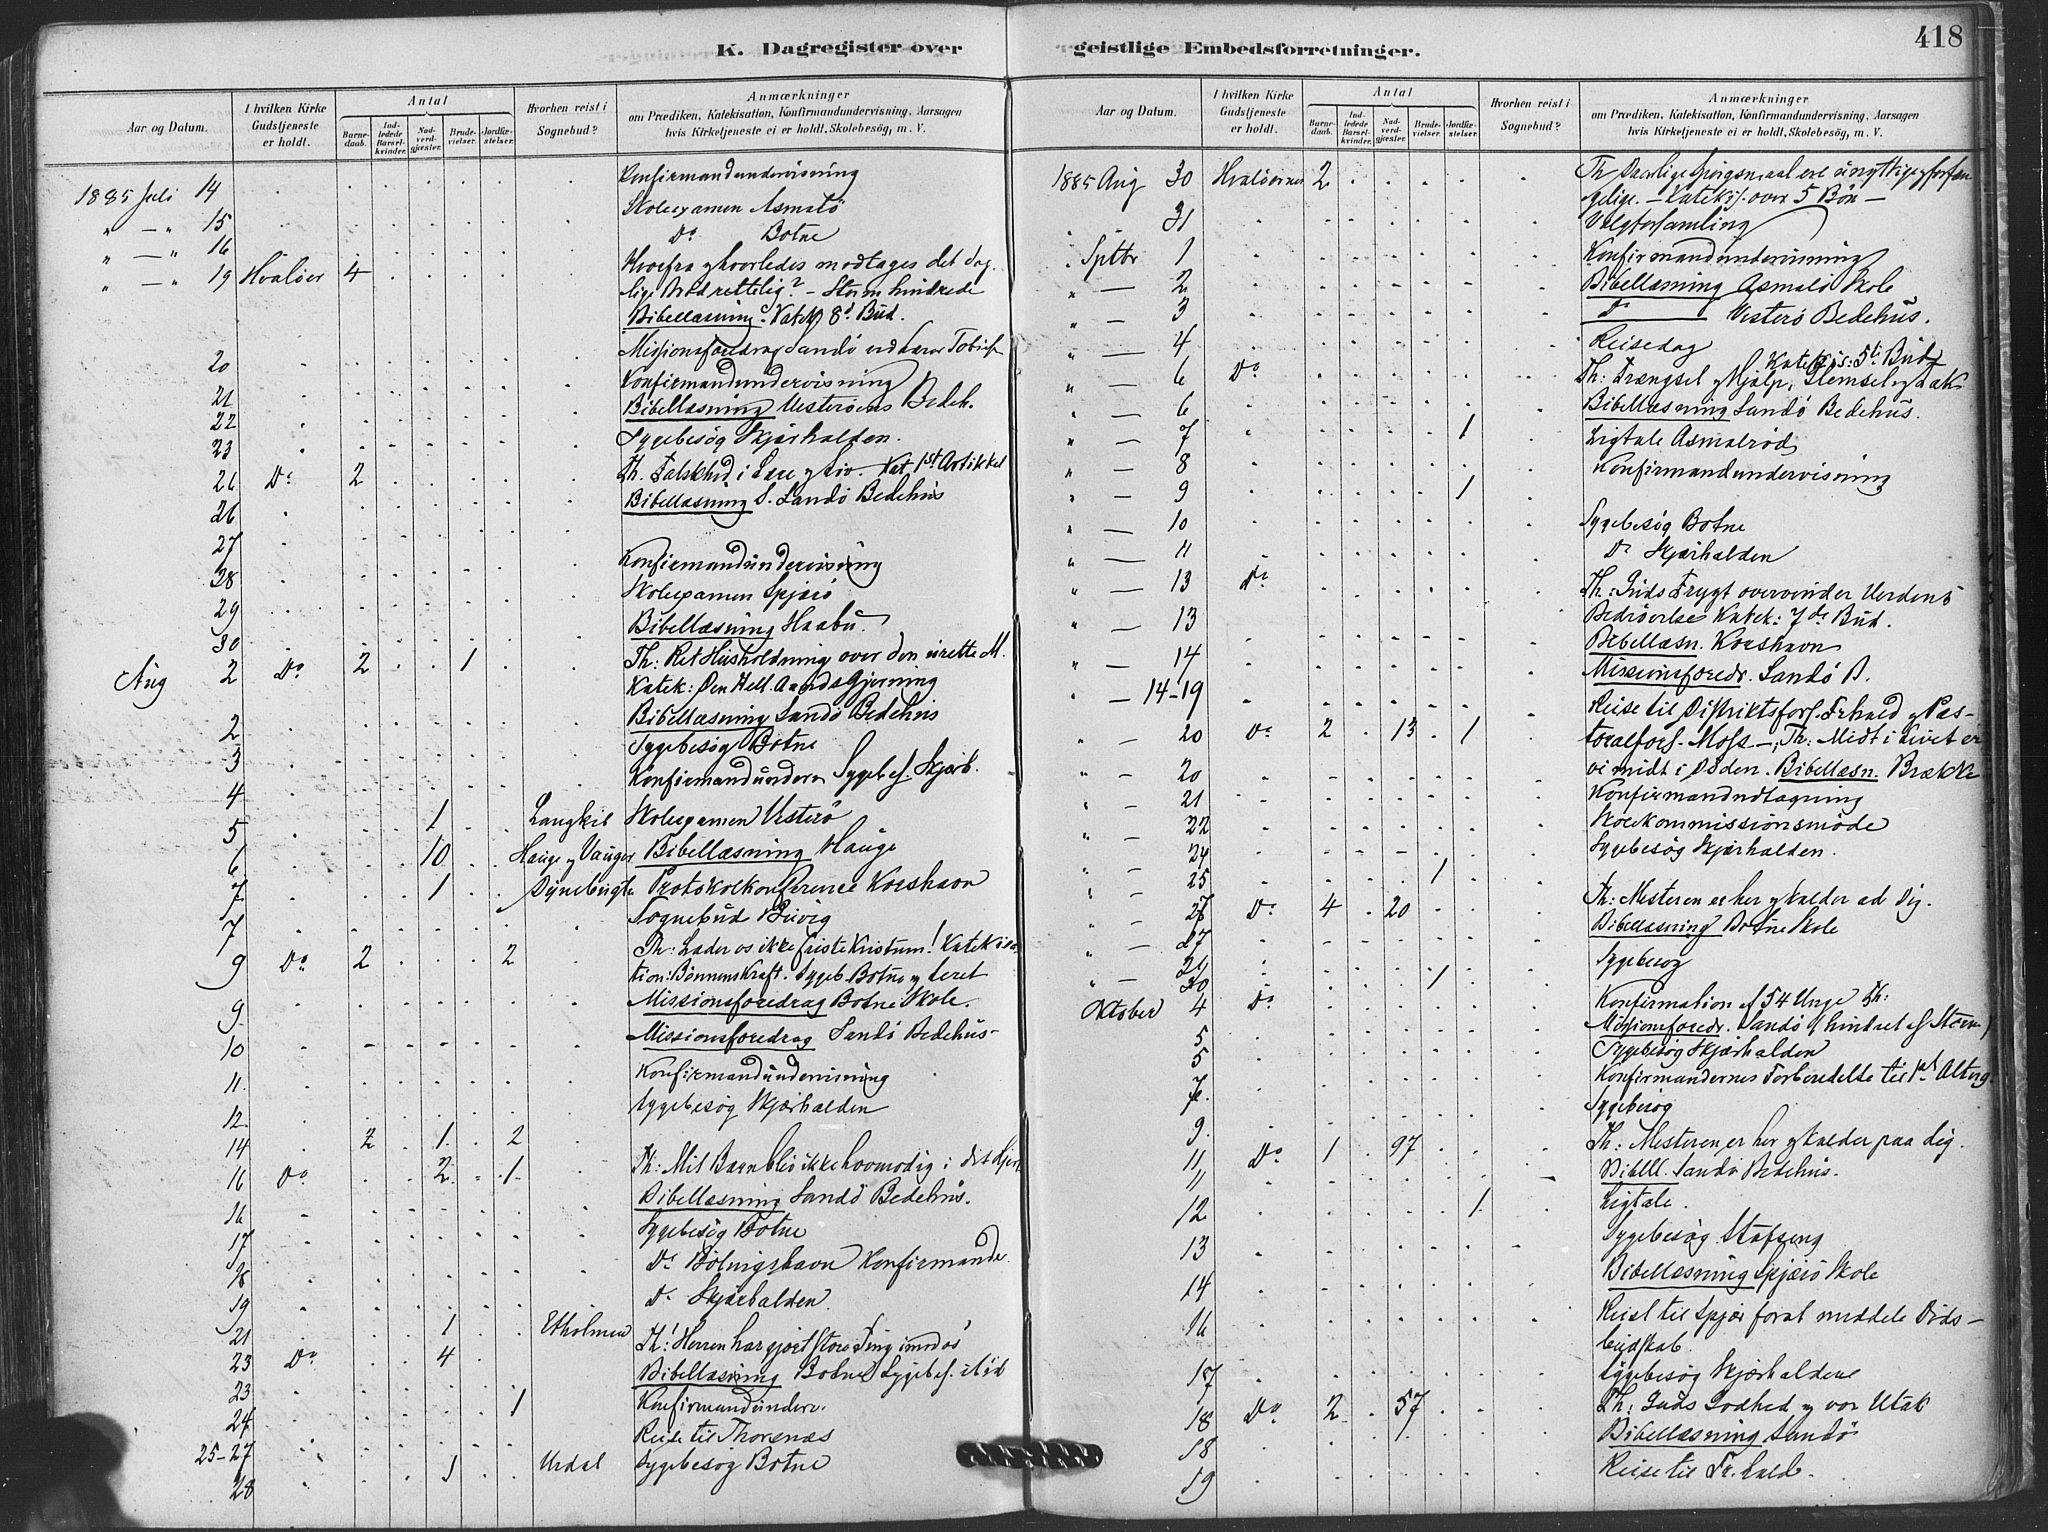 418
K. Dagregister over geistlige Embedsforretninger.
Aar og Datum. I hvilken Kirke Gudstjeneste er holdt. Antal Barnedaab. Indledede Barselkvinder. Nadverdgjæster. Brudevielser. Jordfæstelser. Hvorhen reist i Sognebud? Anmærkninger om Prædiken, Katekisation, Konfirmandundervisning, Aarsagen hvis Kirketjeneste ei er holdt, Skolebesøg, m. V.
1885 Juli 14 Konfirmandundervisning
" — " 15 Skoleexamen Asmalö
" — " 16 Do Botne
" — " 19 Hvaløer 4 Hvorfra og hvorledes modtages det dag-
lige Brød rettelig? – Storm hindrede
Bibellæsning. Katek 8d Bud.
20 Missionsforedrag Sandö
21 Konfirmandundervisning
22 Bibellæsning Vesteröens Bedeh.
23 Sygebesøg Skjærhalden.
26 Do 2 Th. Falskhed i Lære og Liv. Kat. 1st Artikkel
26 Bibellæsning S. Sandö Bedehus
27
28 Konfirmandundervisning
29 Skoleexamen Spjærö
30 Bibellæsning Haabu.
Aug 2 Do 2 1 Th: Ret Husholdning over den urette M.
Katek: Den Hell. Aands Gjerning
2 Bibellæsning Sandö Bedehus
3 Sygebesøg Botne
4 Konfirmandunderv Sygebes. Skjærh.
5 1 Langkil Skoleexamen Vesterö
6 10 Hauge og Vauger Bibellæsning Hauge
7 1 Dynebugte Protokolkonference Korshavn
7 Sognebud Buvig
9 Do 2 2 Th: Lader os ikke friste Kristum! Katekisa-
tion: Bønnens Kraft. Sygeb. Botne og Leret
9 Missionsforedrag Botne Skole.
10 Missionsforedrag Sandö Bedehus
11. Konfirmandundervisning
12 Sygebesøg Skjærhalden
14 2 1 2
16 Do 2 1 Th: Mit Barn bliv ikke hovmodig i dit Hjert
16 Bibellæsning Sandö Bedehus.
17 Sygebesøg Botne
18 Do Bölingshavn Konfirmander
19 Do Skjærhalden
21 1 Etholmen
23 Do 4 Th: Herren har gjort store Ting imod os
23 Bibellæsning Botne Sygebes.
24 1 Konfirmandunderv.
25–27 Reise til Thorsnæs
28 1 Urdal Sygebesøg Botne
Aar og Datum. I hvilken Kirke Gudstjeneste er holdt. Antal Barnedaab. Indledede Barselkvinder. Nadverdgjæster. Brudevielser. Jordfæstelser. Hvorhen reist i Sognebud? Anmærkninger om Prædiken, Katekisation, Konfirmandundervisning, Aarsagen hvis Kirketjeneste ei er holdt, Skolebesøg, m. V.
1885 Aug 30 Hvalöerne 2 Th Daarlige Spørgsmaal ere unyttige og forfæn
gelige. – Katekis. over 5 Bön –
31 Valgforsamling
Sptbr 1 Konfirmandundervisning
" — 2 Bibellæsning Asmalö Skole
" — 3 Do Vesterö Bedehus.
" — 4 Reisedag
Katekis: 5te Bud
" — 6 Do Th: Trængsel og Hjælp, Slemsel og Tak
" — 6 Bibellæsning Sandö Bedehus.
" — 7 1 Ligtale Asmalrød
" — 8 Konfirmandundervisning
" — 9 1
" — 10 Sygebesøg Botne
" — 11 Do Skjærhalden
" — 13 Do Th: Guds Frygt overvinder Verdens
Bedrøvelse Katek: 7de Bud.
" — 13 Bibellæsn. Korshavn
" — 14 Missionsforedr. Sandö B.
" — 14–19 Reise til Distriktsfors. Frhald og Pas-
toralfors. Moss –
" — 20 Do 2 13 1 Th: Midt i Livet er
vi midt i Døden. Bibellæsn. Brække
20
" — 21 Konfirmandudtagning
" — 22 Skolekommissionsmöde
" — 24 Sygebesøg Skjærhalden.
" — 25 1
" — 27 Do 4 20 Th: Mesteren er her og kalder ad Dig.
" — 27 Bibellæsning Botne Skole
Sygebesøg
" — 30 1
Oktober 4 Do Konfirmation af 54 Unge Th:
Missionsforedr. Sandö (hindret af Storm)
5 Sygebesøg Skjærhalden
5 Konfirmandernes Forberedelse til 1st Alterg.
7 Sygebesøg
9.
11 Do 1 97 Th: Mesteren er her og kalder paa Dig.
11 Bibell. Sandö Bedehus.
12 1 Ligtale.
13 Sygebesøg Stafseng
14 Bibellæsning Spjærö Skole
16 Reise til Spjær for at meddele Döds-
budskab.
17 Sygebesøg Skjærhaldene
18 Do 2 57 Th: Guds Godhed og vor Utak
18 Bibellæsning Sandö
19 Reise til Fr.hald.